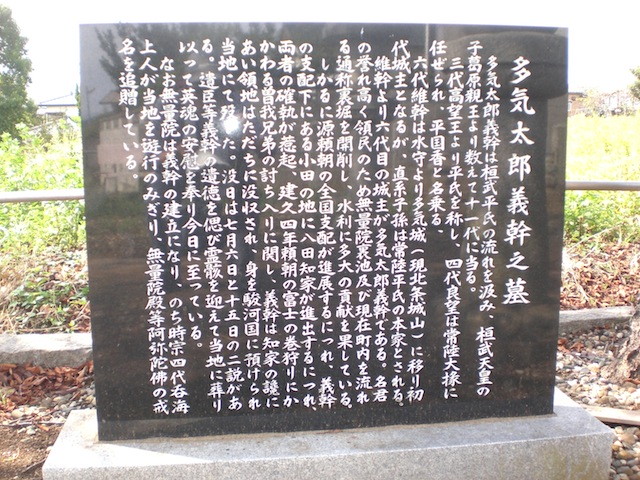 多気太郎義幹之墓
多気太郎義幹は桓武平氏の流れを汲み、桓武天皇の
子葛原親王より数えて十一代に当る。
三代高望王より平氏を称し、四代良望は常陸大掾に
任ぜられ、平国香と名乗る、
六代維幹は水守より多気城（現北条城山）に移り初
代城主となるが、直系子孫は常陸平氏の本家とされる。
維幹より六代目の城主が多気太郎義幹である。名君
の誉れ高く領民のため無量院裏池及び現在町内を流れ
る通称裏堀を開削し、水利に多大の貢献を果している。
しかるに源頼朝の全国支配が進展するにつれ、義幹
の支配下にある小田の地に八田知家が進出するにつれ、
両者の確執が惹起、建久四年頼朝の富士の巻狩りにか
かわる曽我兄弟の討ち入りに関し、義幹は知家の讒に
あい領地はただちに没収され、身を駿河国に預けられ
当地にて歿した。没日は七月六日と十五日の二説があ
る。遺臣等義幹の遺徳を偲び霊骸を迎えて当地に葬り
以って英魂の安慰を奉り今日に至っている。
なお無量院は義幹の建立になり、のち時宗四代呑海
上人が当地を遊行のみぎり、無量院殿等阿弥陀佛の戒
名を追贈している。